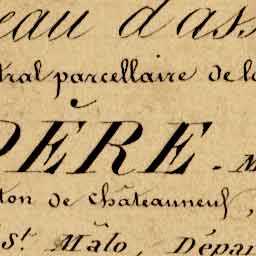 eau d'ass
tral parcellaire de la
DĚRE - M
ton de Châteauneuf,
St. Malo, Dépar